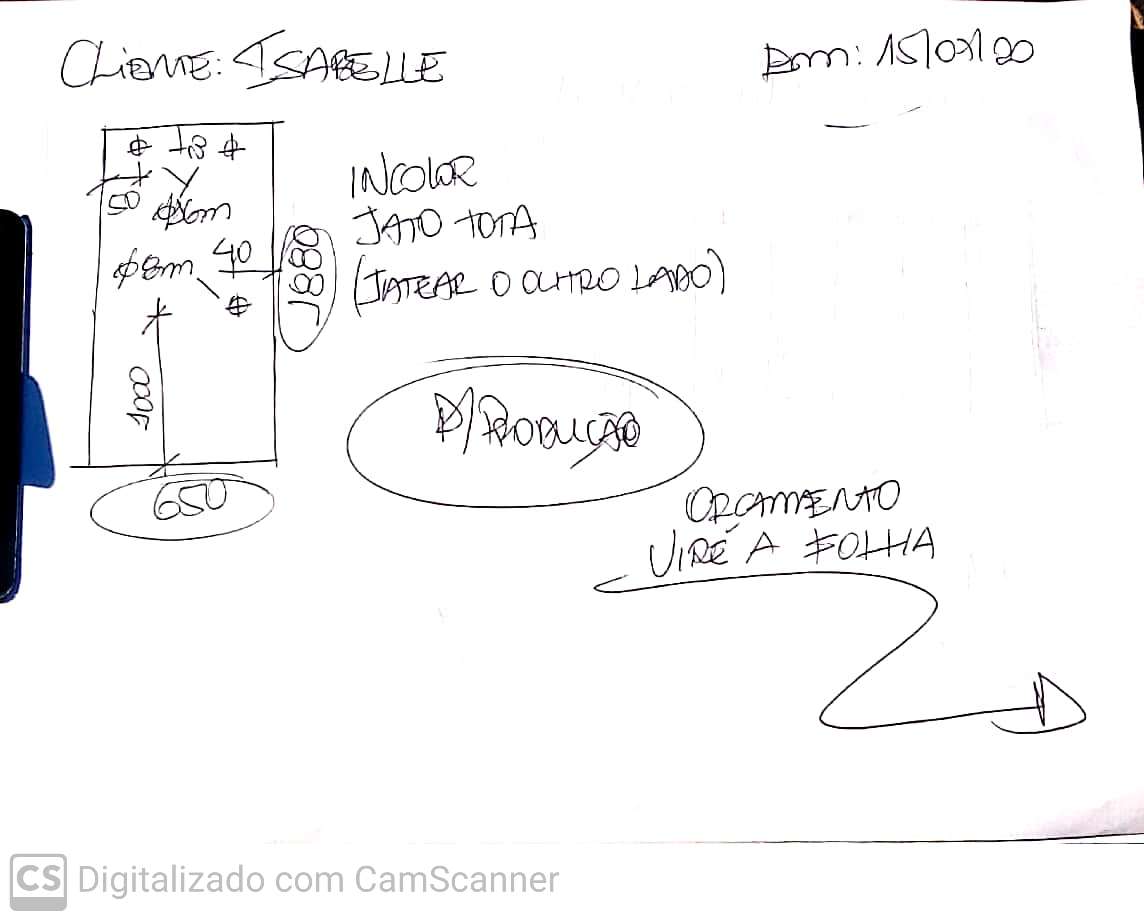 Cliente: ISABELLE
15/07/20
50
40
Ø8m
1000
1880
650
INCOLOR
JATO TOTA
(JATEAR O OUTRO LADO)
P/ PRODUÇÃO
ORÇAMENTO
VIRE A FOLHA
CS Digitalizado com CamScanner